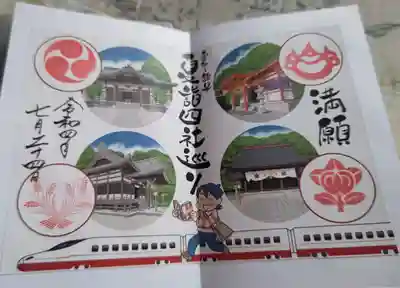 満願
夏詣四社巡り
令和四年
七月二十四日